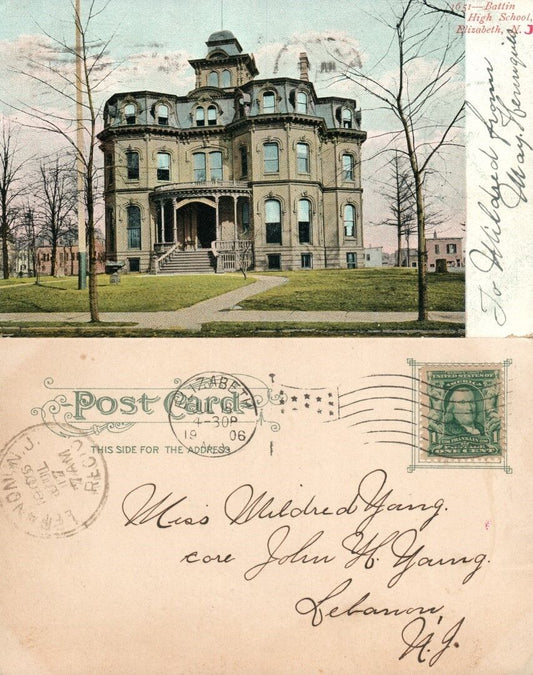 1651—Battin
High School,
Elizabeth, N.J
To Mildred from
May Hennigueis
Post Card
THIS SIDE FOR THE ADDRESS
ELIZABETH
4-30P
19 06
N.J.
UNITED STATES OF AMERICA
FRANKLIN
1 1
ONE CENT
REC'D
7 AM
N.J.
Miss Mildred Yang.
core John H Young.
Lebanon,
N.J.